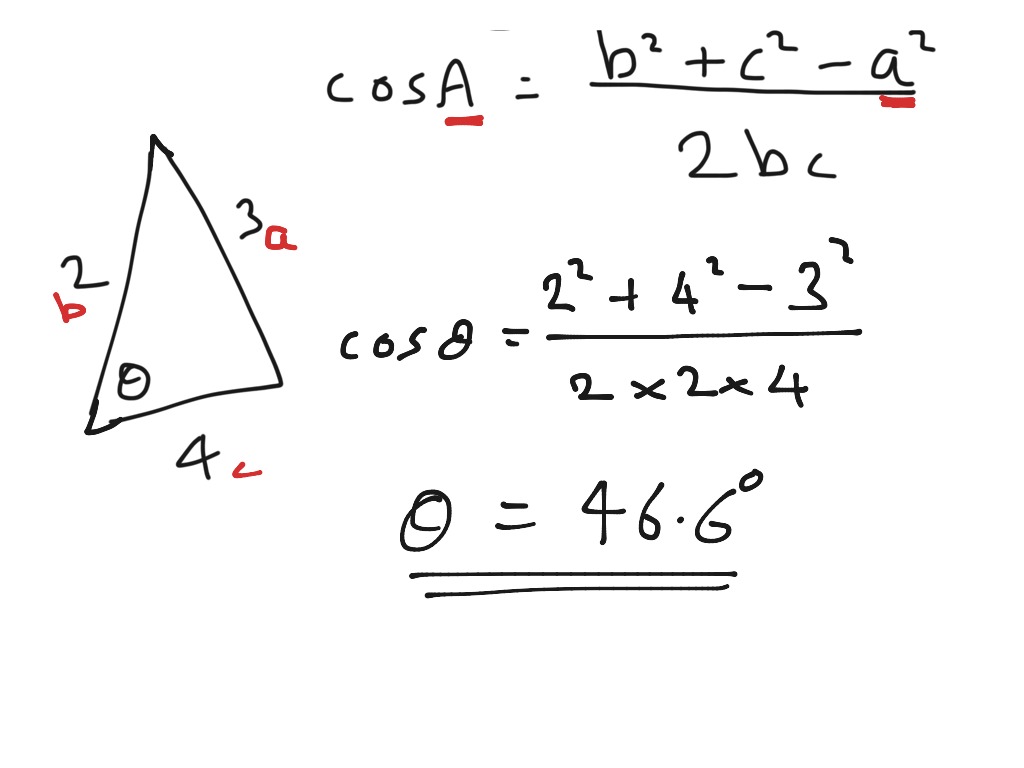 cosA = b² + c² - a²
2bc
3 a
2
b
cosθ = 2² + 4² - 3²
2 × 2 × 4
θ
4 c
θ = 46.6°